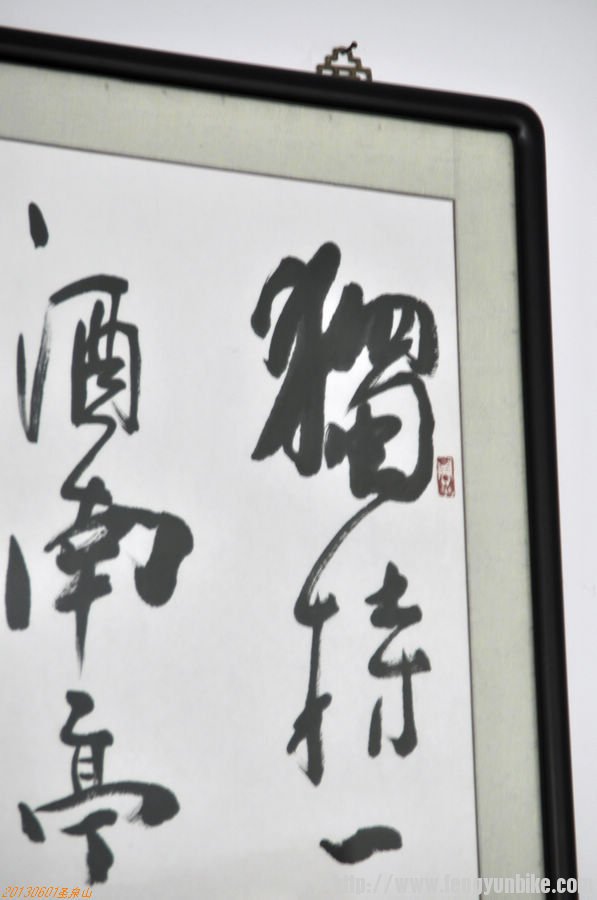 獨持一
酒南亭
20130601圣泉山
http://www.fengyunbike.com